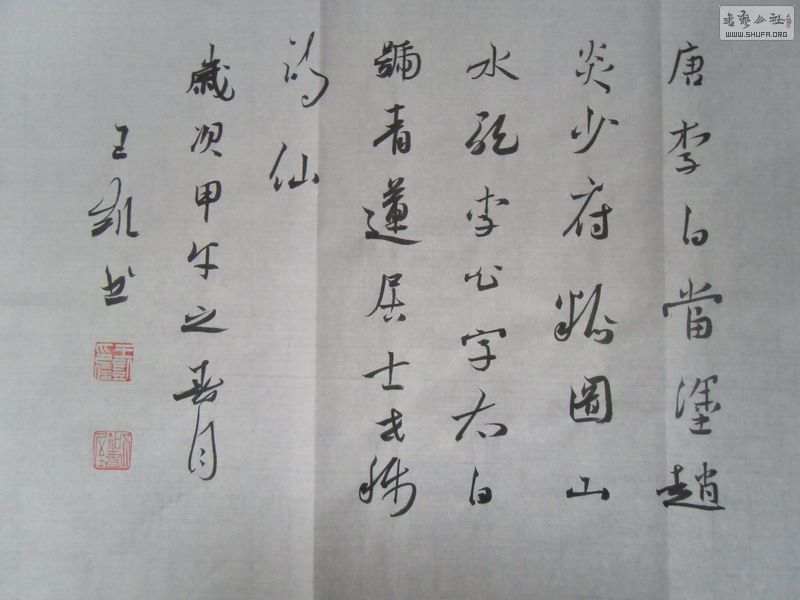 唐李白當塗趙
炎少府粉圖山
水歌李白字太白
號青蓮居士世稱
詩仙
歲次甲午之春月
王凱書
書藝公社
WWW.SHUFA.ORG